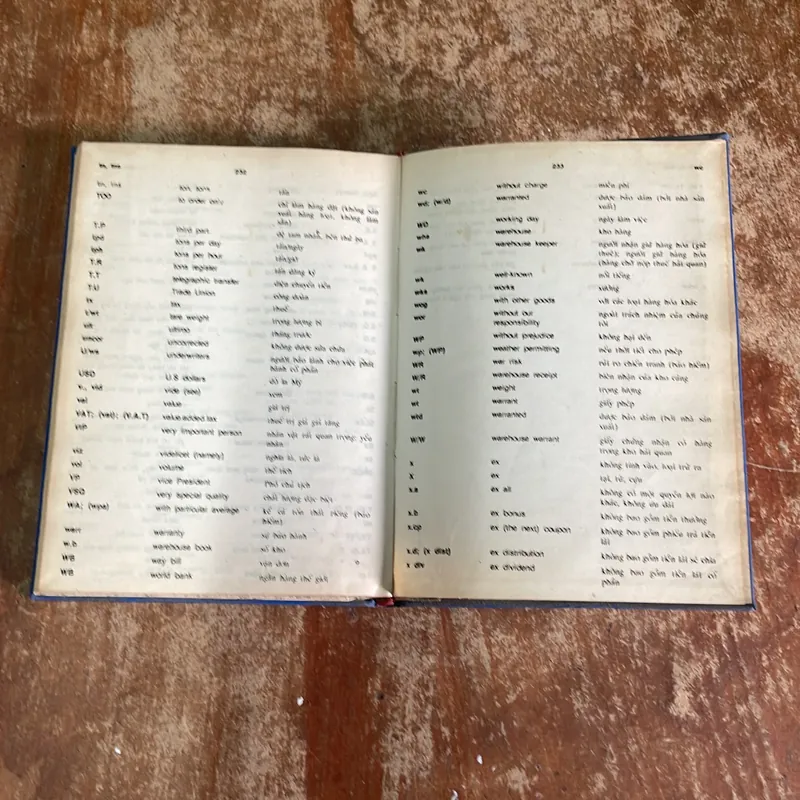 tn, tns 232
tn, tns ton, tons tấn
TOO to order only chỉ làm hàng đặt (không sản
xuất hàng loạt, không làm
sẵn)
T.P third part đệ tam nhân, bên thứ ba
tpd tons per day tấn/ngày
tph tons per hour tấn/giờ
T.R tons register tấn đăng ký
T.T telegraphic transfer điện chuyển tiền
T.U Trade Union công đoàn
tx tax thuế
t/wt tare weight trọng lượng bì
ult ultimo tháng trước
uncor uncorrected không được sửa chữa
U/ws underwriters người bảo lãnh cho việc phát
hành cổ phần
USD U.S dollars đô la Mỹ
v., vid vide (see) xem
val value giá trị
VAT; (vat); (V.A.T) value added tax thuế trị giá gia tăng
VIP very important person nhân vật rất quan trọng; yếu
nhân
viz videlicet (namely) nghĩa là, tức là
vol volume thể tích
VP vice President Phó chủ tịch
VSQ very special quality chất lượng đặc biệt
WA; (wpa) with particular average kể cả tổn thất riêng (bảo
hiểm)
warr warranty sự bảo hành
w.b warehouse book sổ kho
WB way bill vận đơn
WB world bank ngân hàng thế giới
233 wc
wc without charge miễn phí
wd; (w/d) warranted được bảo đảm (bởi nhà sản
xuất)
WD working day ngày làm việc
whs warehouse kho hàng
wk warehouse keeper người nhận giữ hàng hóa (giữ
thuê); người giữ hàng hóa
(hàng chờ nộp thuế hải quan)
wk well-known nổi tiếng
wks works xưởng
wog with other goods với các loại hàng hóa khác
wor without our ngoài trách nhiệm của chúng
responsibility tôi
WP without prejudice không hại đến
wp; (WP) weather permitting nếu thời tiết cho phép
WR war risk rủi ro chiến tranh (bảo hiểm)
W/R warehouse receipt biên nhận của kho cảng
wt weight trọng lượng
wt warrant giấy phép
wtd warranted được bảo đảm (bởi nhà sản
xuất)
W/W warehouse warrant giấy chứng nhận có hàng
trong kho hải quan
x ex không tính vào, loại trừ ra
X ex tại, từ, cựu
x.a ex all không có một quyền lợi nào
khác, không ưu đãi
x.b ex bonus không bao gồm tiền thưởng
x.cp ex (the next) coupon không bao gồm phiếu trả tiền
lãi
x.d; (x dist) ex distribution không bao gồm tiền lãi sẽ chia
x div ex dividend không bao gồm tiền lãi cổ
phần